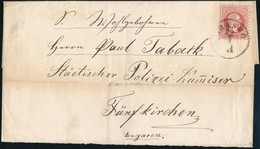 S. Wohlgeboren
Herrn Paul Taback
Städtischer Polizei Kumissär
Fünfkirchen
Ungarn.